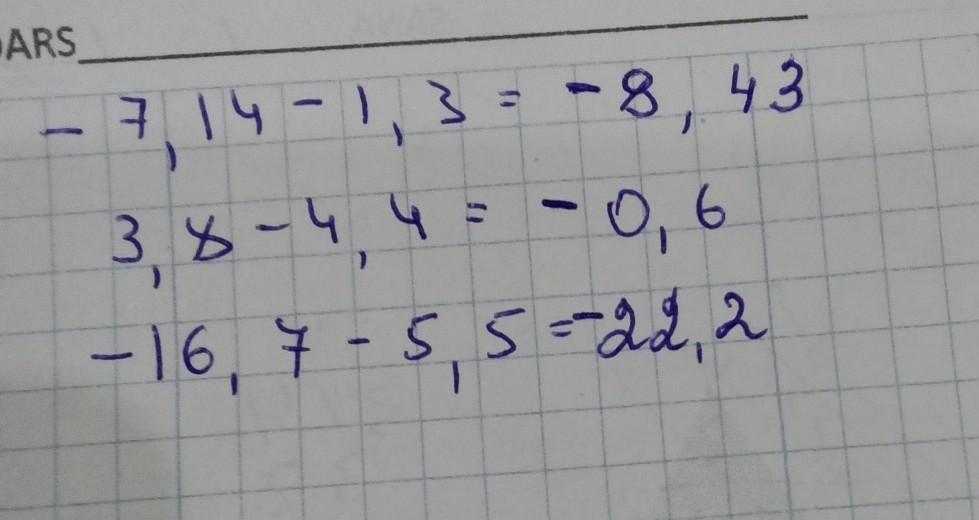 ARS
- 7,14 - 1,3 = - 8,43
3,8 - 4,4 = - 0,6
-16,7 - 5,5 = -22,2